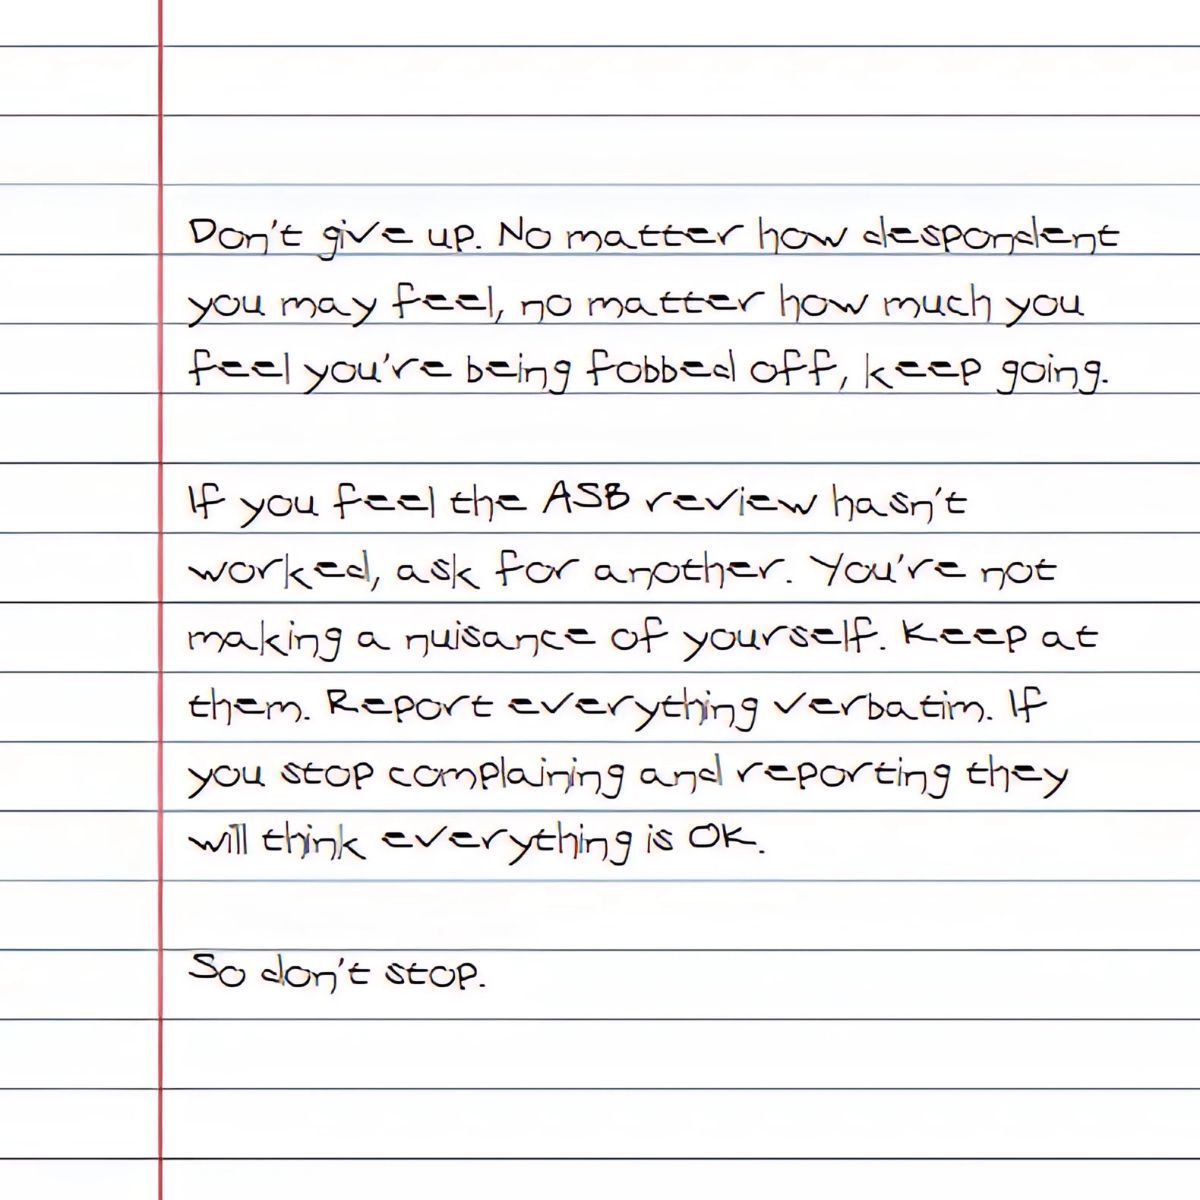 Don't give up. No matter how despondent
you may feel, no matter how much you
feel you're being fobbed off, keep going.
If you feel the ASB review hasn't
worked, ask for another. You're not
making a nuisance of yourself. Keep at
them. Report everything verbatim. If
you stop complaining and reporting they
will think everything is OK.
So don't stop.